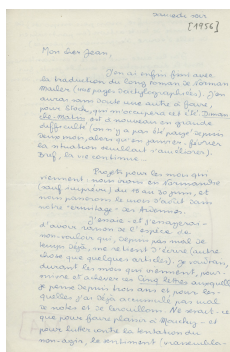 samedi soir
[1956]
Mon cher Jean,
J'en ai enfin fini avec
la traduction du long roman de Norman
Mailer (mes pages dactylographiées). J'en
aurai sans doute une autre à faire,
pour Stock, qui m'occupera cet été.
est à nouveau en grande
difficulté (on n'y a pas été payé depuis
deux mois, alors qu'en janvier, février
la situation semblait s'améliorer).
Bref, la vie continue.
Projets pour les mois qui
viennent: nous irons en Normandie
(sauf imprévu) du 10 au 30 juin, et
nous passerons le mois d'août dans
notre ermitage des Ardennes.
J'essaie et j'essayerai
d'avoir raison de l'espèce de
non-vouloir qui, depuis pas mal de
temps déjà, me retient d'écrire (autre
chose que quelques articles). Je voudrais,
durant les mois qui viennent, pour-
suivre et achever ces cinq lettres auxquelles
je pense depuis trois ans et pour les-
quelles j'ai déjà accumulé pas mal
de notes et de brouillons. Ne serait-ce
que pour faire plaisir à
pour lutter contre la tentation du
non-agir, le sentiment (vraisembla-